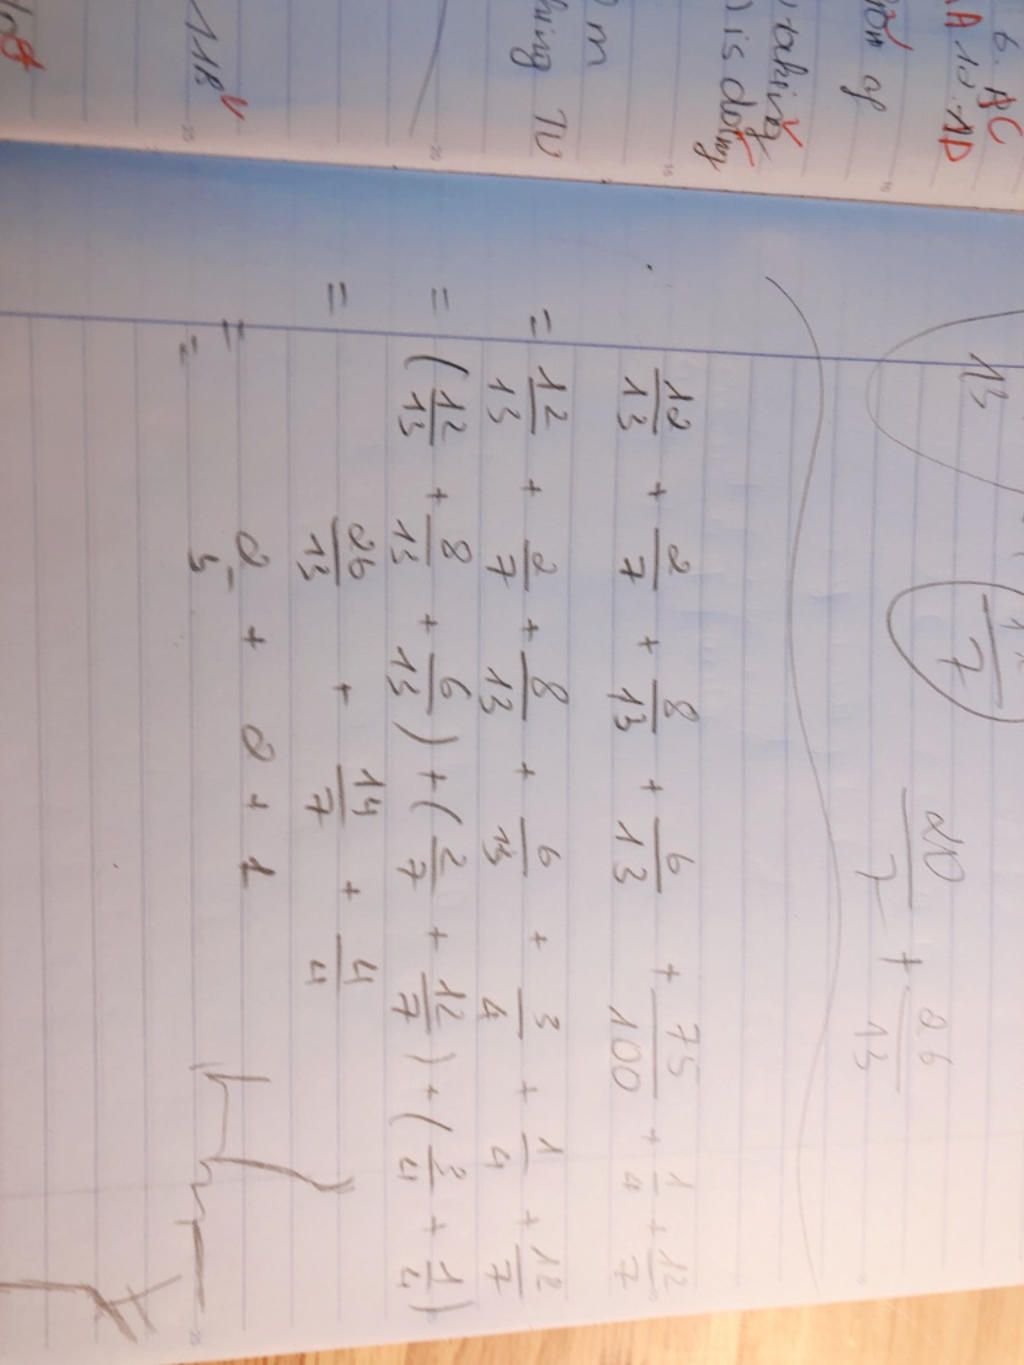 6. AC
AA 1d. AD
of
taking
is doing
m
118
13
12/7
20/7 + 26/13
12/13 + 2/7 + 8/13 + 6/13 + 75/100 + 1/4 + 12/7
= 12/13 + 2/7 + 8/13 + 6/13 + 3/4 + 1/4 + 12/7
= (12/13 + 8/13 + 6/13) + (2/7 + 12/7) + (3/4 + 1/4)
= 26/13 + 14/7 + 4/4
= 2 + 2 + 1
= 5